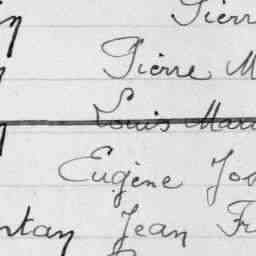 Pierr
Pierre M
Louis Mari
Eugène Jos
ntan Jean Fr